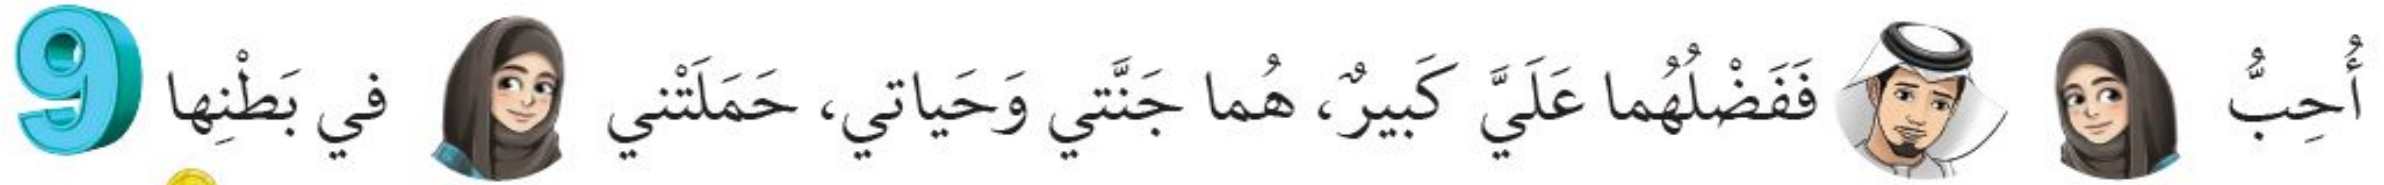 أُحِبُّ فَفَضْلُهُما عَلَيَّ كَبيرٌ، هُما جَنَّتي وَحَياتي، حَمَلَتْني في بَطْنِها 9